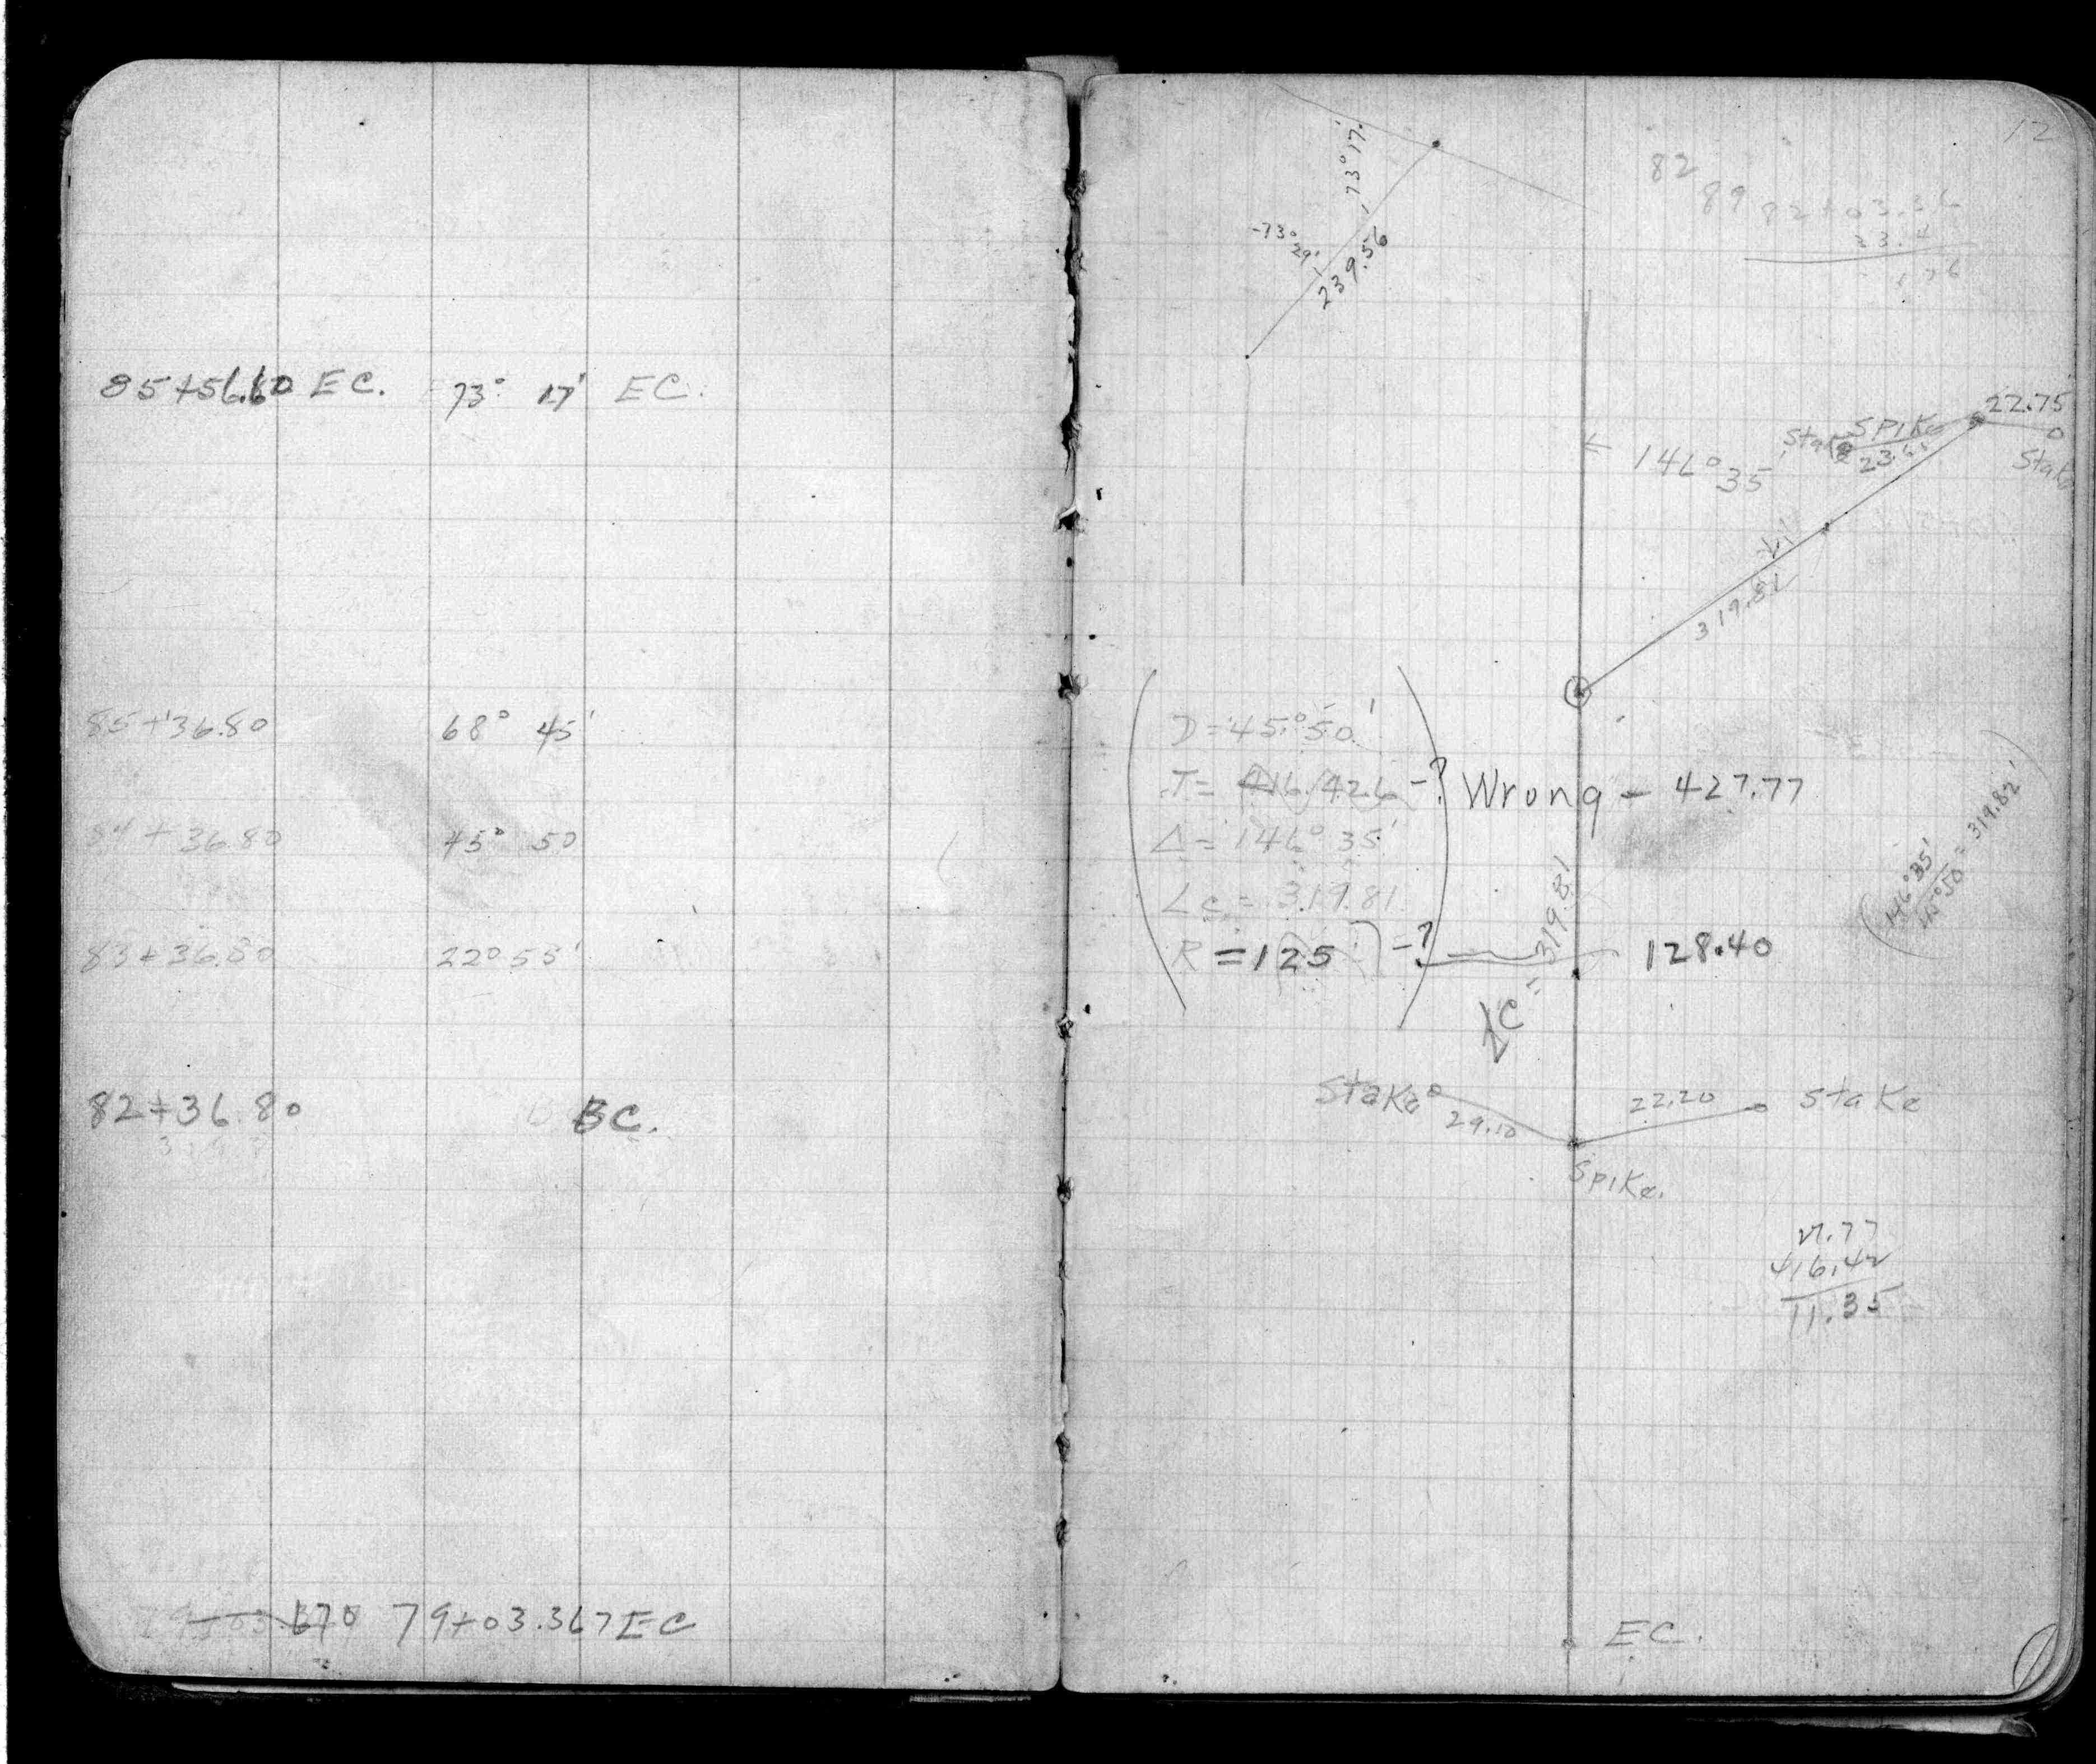 85+56.60 EC. 73° 17' EC.
85+36.80 68° 45'
84+36.80 45° 50
83+36.80 22° 55'
82+36.80 BC.
670 79+03.367 EC
12
73° 17'
-73° 29'
239.56
82
89 82+03.36
22.75
Stake SPIKe
23.61
Stake
← 146° 35'
319.82
D = 45° 50'
T = 416.42 -? Wrong - 427.77
Δ = 146° 35'
Lc = 319.81
R = 125 -? 128.40
LC = 319.81
(146° 35' / 45° 50 = 319.82')
Stake 29.10 22.20 Stake
SPIKe.
27.77
416.42
11.35
EC.